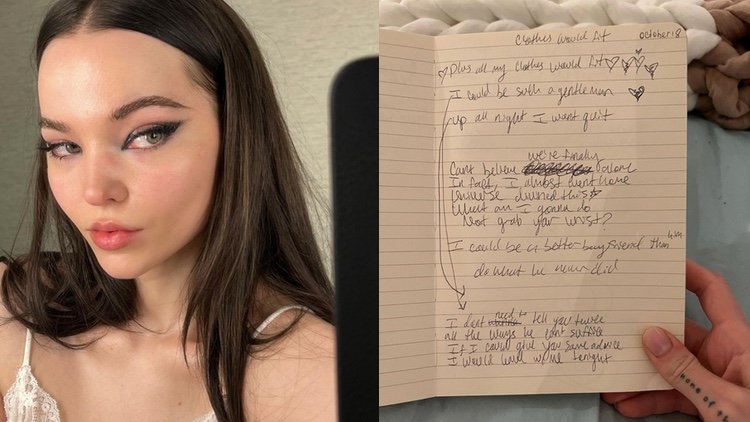 Clothes would fit
October 18
Plus all my clothes would fit
I could be such a gentleman
up all night I wont quit
we're finally
Cant believe alone
In fact, I almost went home
universe this
What am I gonna do
Not grab your wrist?
I could be a better boyfriend than him
do what he never did
need to
I dont tell you twice
all the ways he cant suffice
If I could give you some advice
I would leave w/ me tonight
none of th